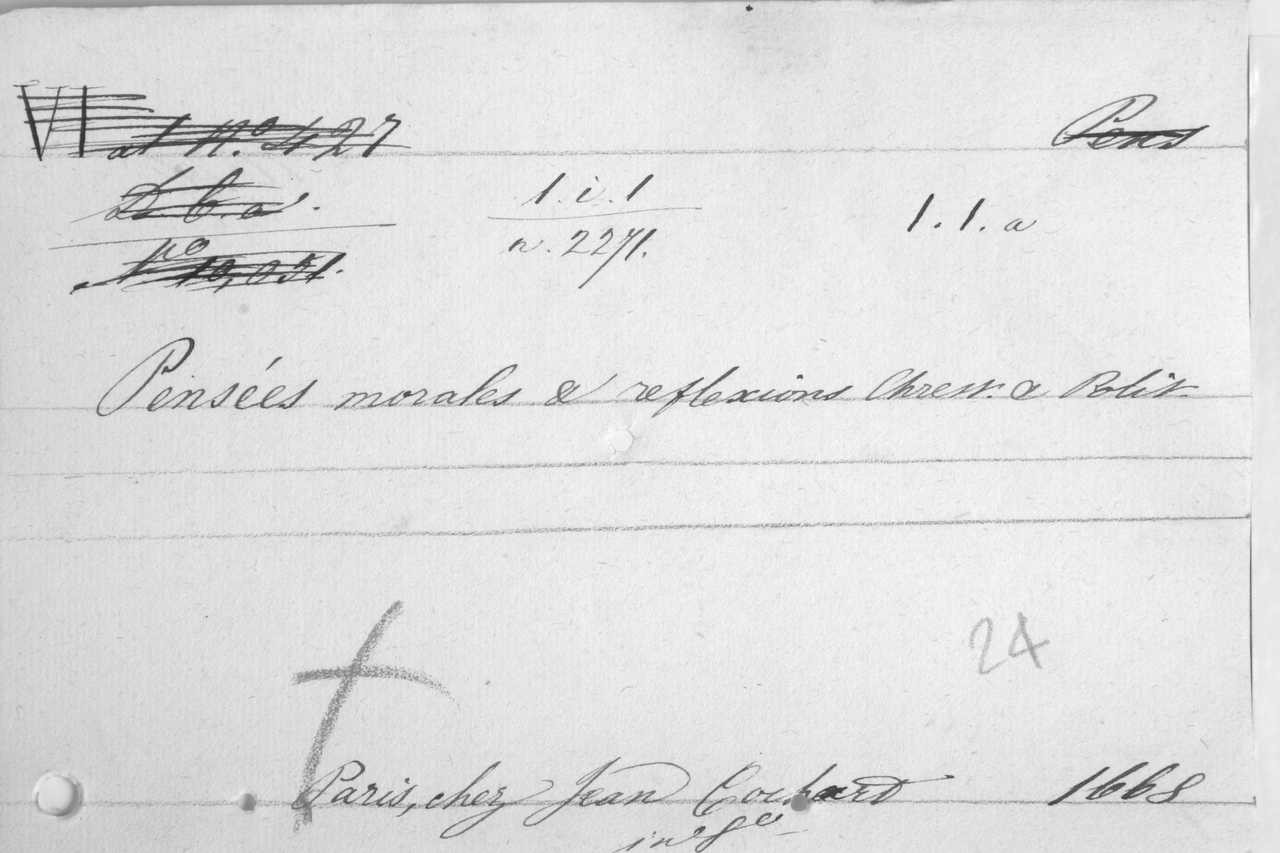 VI at N.º 427 Pens
D. b. a. 1.i.1 1.1.a
Nº 10,031. n. 2271.
Pensées morales & reflexions Chrest. & Polit.
24
Paris, chez Jean Cochart 1668
in 8º